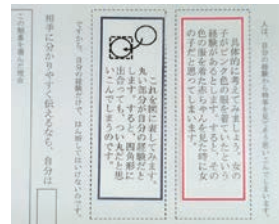 人は、自分の経験から物事を見て、よう思いこんでしまいま
具体的に考えてみましょう。女の
子がピンク色の服を着ているという
経験があるとします。すると、その
色の服を着た赤ちゃんを見た時に女
の子だと思ってしまいます。
これを図に表してみます。
丸い部分が自分の経験だと
します。すると、四角形に
出合っても、つい丸だと思
いこんでしまうのです。
ですから、自分の経験だけで、はん断してはいけないのです。
相手に分かりやすく伝えるなら、自分は
この題事を選んだ理由